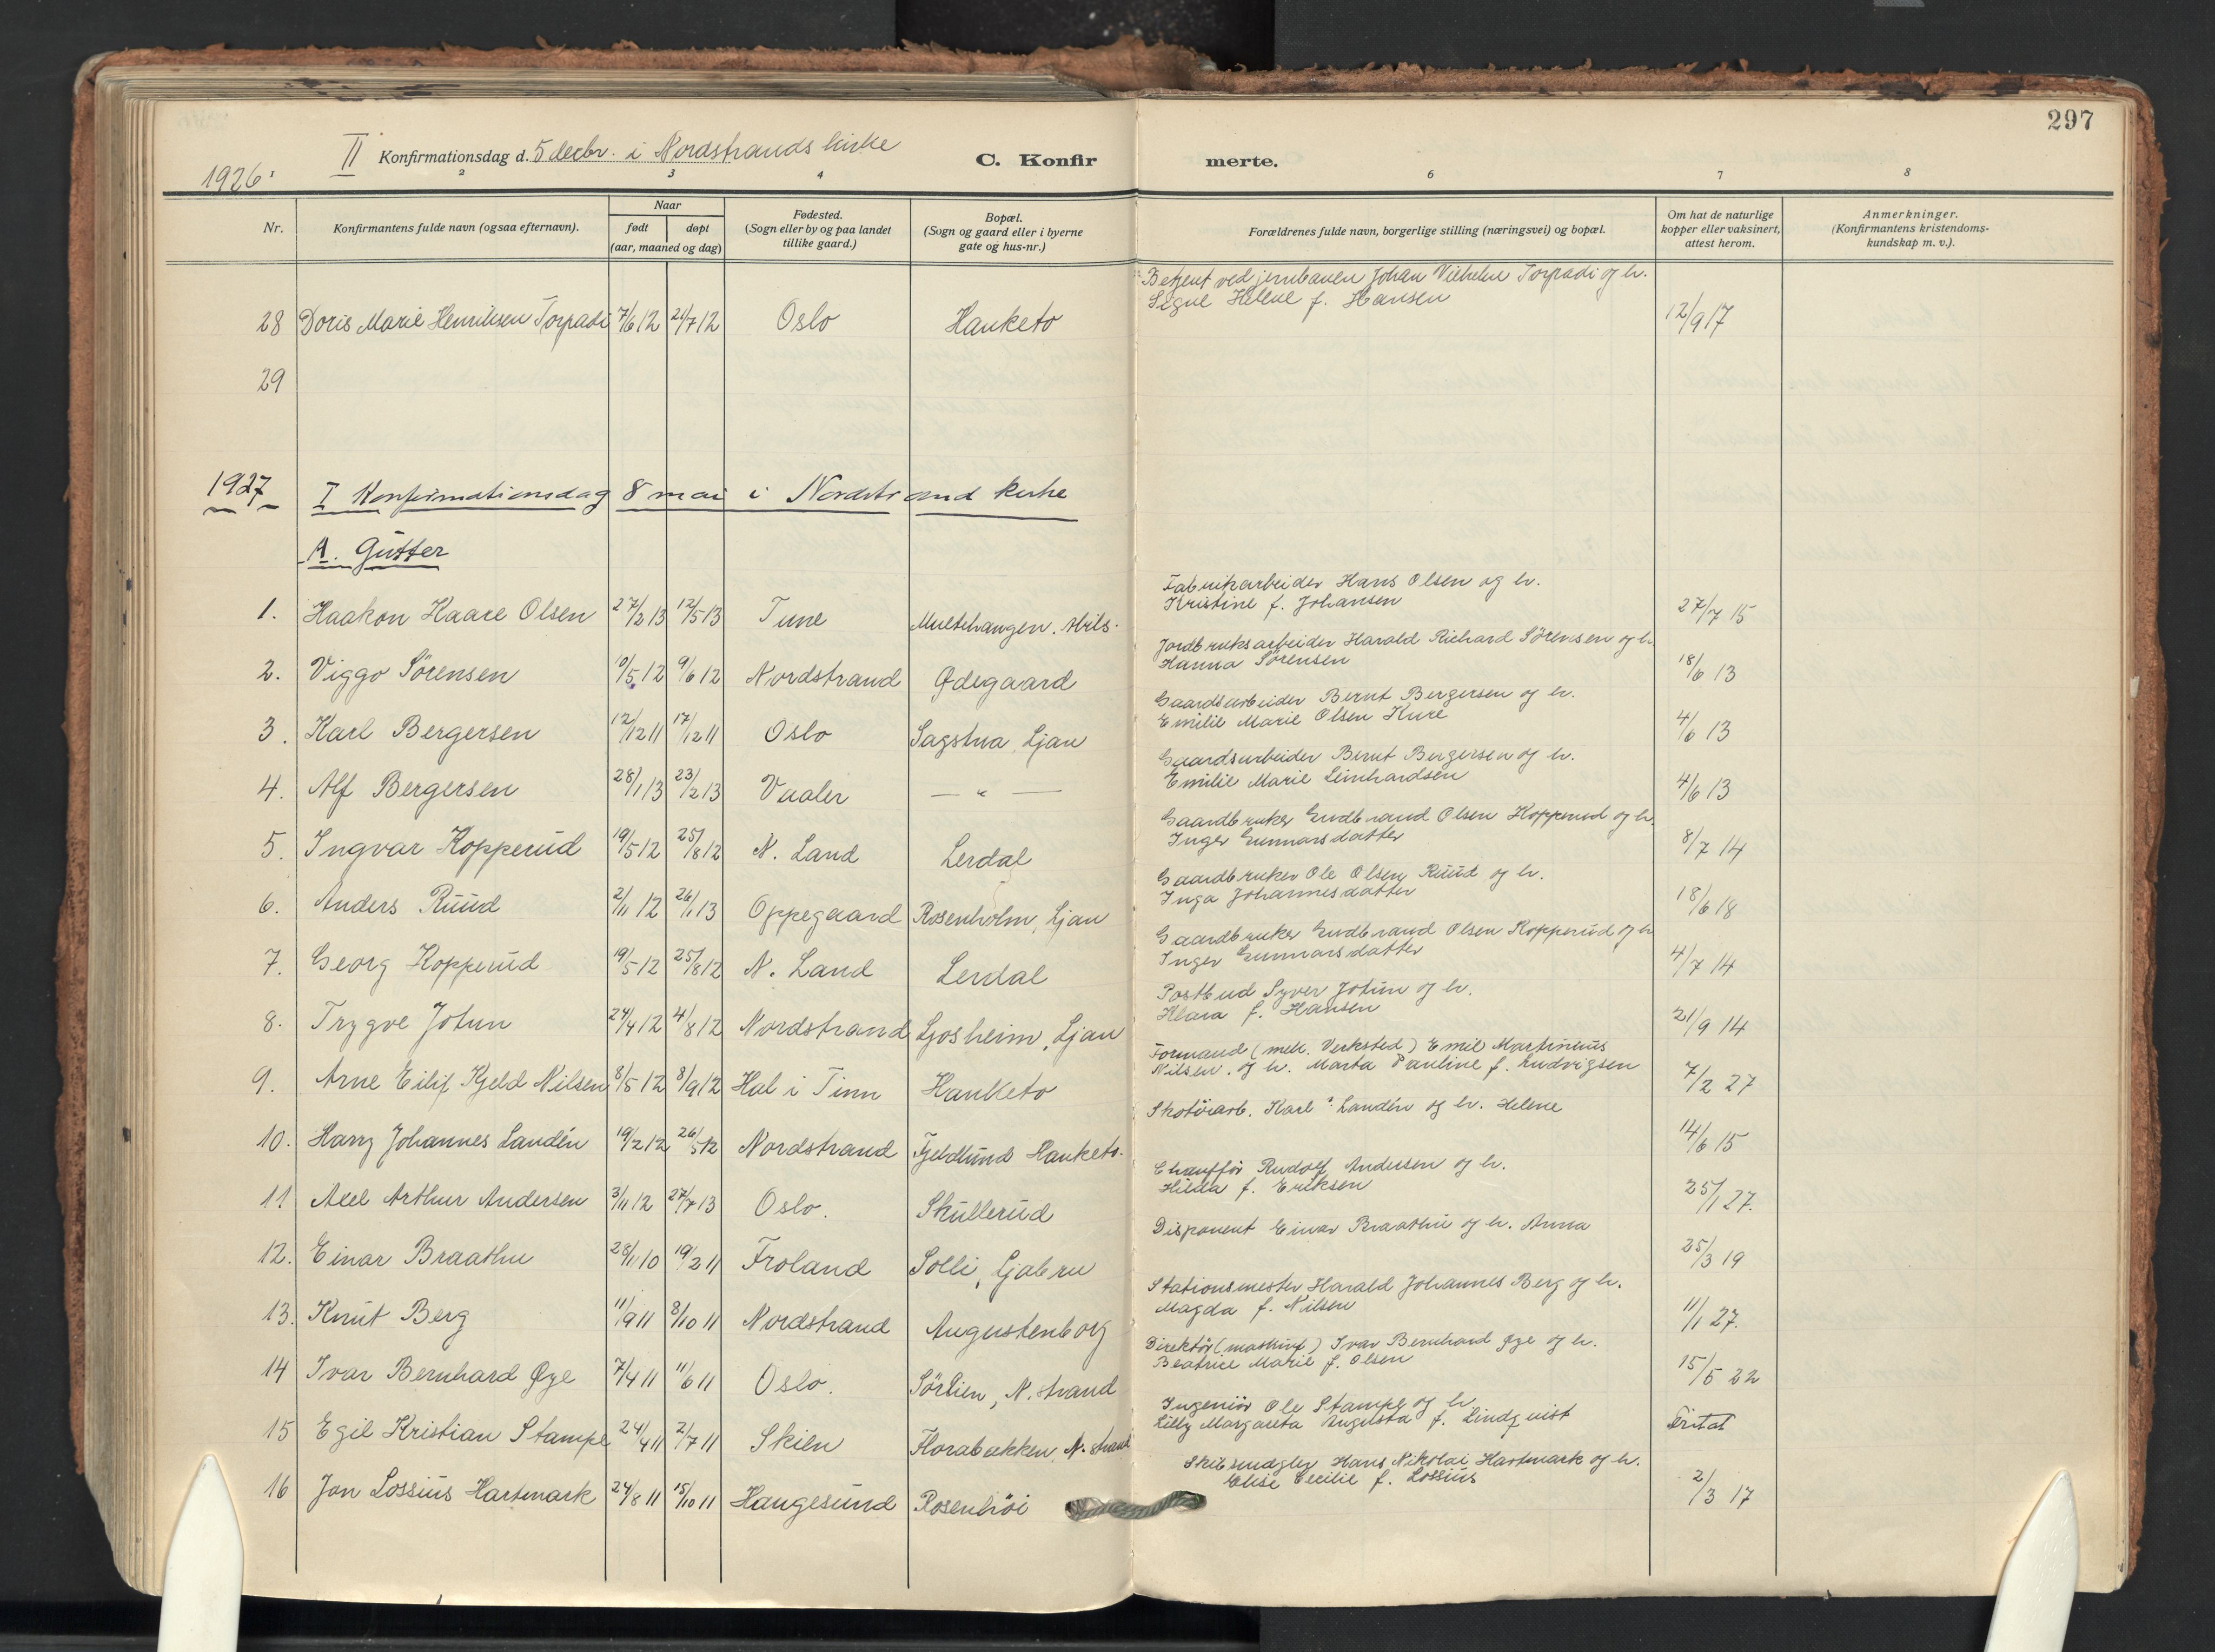 297
1926.
II Konfirmationsdag d. 5 decbr. i Nordstrands kirke
C. Konfirmerte.
1 2 3 4 6 7 8
Nr.
Konfirmantens fulde navn (ogsaa efternavn).
Naar
født døpt
(aar, maaned og dag)
Fødested.
(Sogn eller by og paa landet
tillike gaard.)
Bopæl.
(Sogn og gaard eller i byerne
gate og hus-nr.)
Forældrenes fulde navn, borgerlige stilling (næringsvei) og bopæl.
Om hat de naturlige
kopper eller vaksinert,
attest herom.
Anmerkninger.
(Konfirmantens kristendoms-
kundskap m. v.).
Betjent ved jernbanen Johan Vilhelm Torpadi og h.
Signe Helene f. Hansen
28 Doris Marie Henriksen Torpadi 7/6 12 21/7 12 Oslo Hauketo 12/9 17
29
1927 I Konfirmationsdag 8 mai i Nordstrand kirke
A. Gutter
Fabrikarbeider Hans Olsen og h.
Kristine f. Johansen
1. Haakon Kaare Olsen 27/2 13 12/5 13 Tune Multehaugen. Hils. 27/7 15
Jordbruksarbeider Harald Richard Sörensen og h.
Hanna Sörensen
2. Viggo Sörensen 10/5 12 9/6 12 Nordstrand Ødegaard 18/6 13
Gaardsarbeider Bernt Bergersen og h.
Emilie Marie Olsen Kure
3. Karl Bergersen 12/12 11 17/12 11 Oslo Sagstua, Ljan 4/6 13
Gaardsarbeider Bernt Bergersen og h.
Emilie Marie Leinhardsen
4. Alf Bergersen 28/1 13 23/2 13 Vaaler — " — 4/6 13
Gaardbruker Gudbrand Olsen Kopperud og h.
Inger Gunnarsdatter
5. Ingvar Kopperud 19/5 12 25/8 12 N. Land Lerdal 8/7 14
Gaardbruker Ole Olsen Ruud og h.
Inga Johannesdatter
6. Anders Ruud 2/11 12 26/1 13 Oppegaard Rosenholm, Ljan 18/6 18
Gaardbruker Gudbrand Olsen Kopperud og h
Inger Gunnarsdatter
7. Georg Kopperud 19/5 12 25/8 12 N. Land Lerdal 4/7 14
Postbud Syver Jotun og h.
Klara f. Hansen
8. Trygve Jotun 24/4 12 4/8 12 Nordstrand Ljosheim, Ljan 21/9 14
Formand (mek. Verksted) Emil Martinius
Nilsen. og h. Marta Pauline f. Ludvigsen
9. Arne Eilif Kjeld Nilsen 8/5 12 8/9 12 Hal i Tinn Hauketo 7/2 27
Skotöiarb. Karl Landén og h. Helene
10. Harry Johannes Landén 19/2 12 26/5 12 Nordstrand Fjeldlund Hauketo. 14/6 15
Chaufför Rudolf Andersen og h.
Hilda f. Eriksen
11 Axel Arthur Andersen 3/11 12 27/7 13 Oslo. Skullerud 25/1 27.
Disponent Einar Braathu og h. Anna
12. Einar Braathu 28/11 10 19/2 11 Froland Solli, Ljabru 25/3 19
Stationsmester Harald Johannes Berg og h.
Magda f. Nilsen
13. Knut Berg 11/9 11 8/10 11 Nordstrand Augustenborg 11/1 27.
Direktör (maskinf) Ivar Bernhard Øye og h.
Beatrice Marie f. Olsen
14 Ivar Bernhard Øye 7/4 11 11/6 11 Oslo. Sörlien, N. strand 15/5 22
Ingeniör Ole Stampe og h.
Lilly Margareta Augusta f. Lindqvist
15 Egil Kristian Stampe 24/4 11 2/7 11 Skien Florabakken, N. strand Fritat
Skibsmegler Hans Nikolai Hartmark og h.
Elise Cecilie f. Lossius
16 Jan Lossius Hartmark 24/8 11 15/10 11 Haugesund Rosenhöi 2/3 17